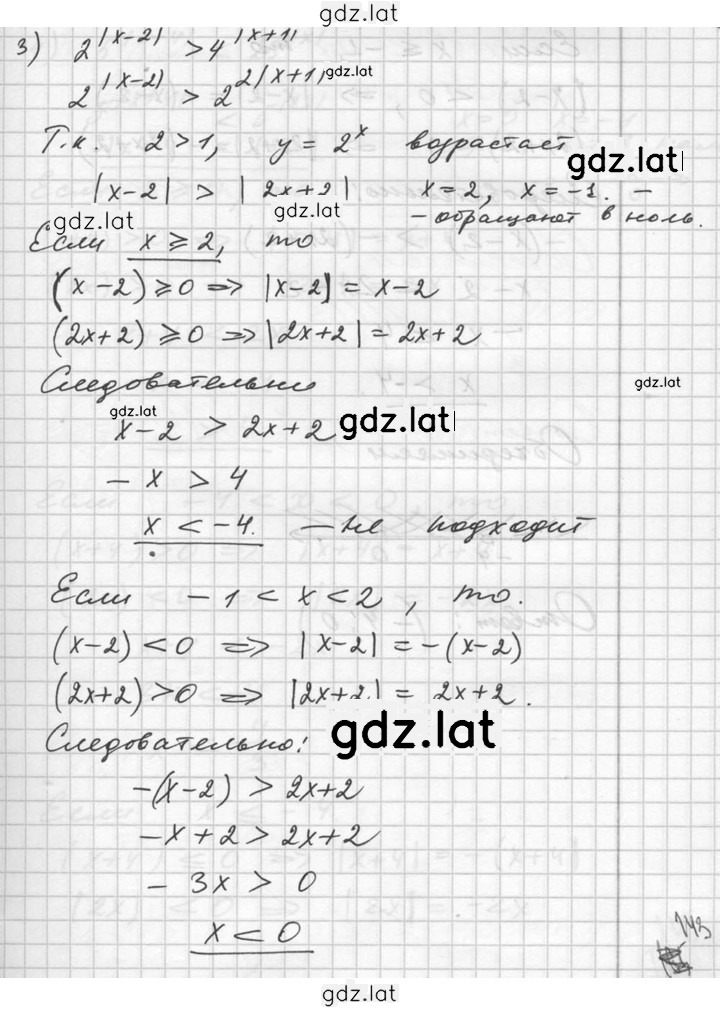 gdz.lat
3) 2^|x-2| > 4^|x+1|
gdz.lat
2^|x-2| > 2^2|x+1|
Т.к. 2 > 1, y = 2^x возрастает
gdz.lat
|x-2| > |2x+2| x=2, x=-1. -
gdz.lat gdz.lat - обращают в ноль.
Если x ⩾ 2, то
(x-2) ⩾ 0 => |x-2| = x-2
(2x+2) ⩾ 0 => |2x+2| = 2x+2
Следовательно
gdz.lat
gdz.lat gdz.lat
x-2 > 2x+2
-x > 4
x < -4. - не подходит
Если -1 < x < 2, то.
(x-2) < 0 => |x-2| = -(x-2)
(2x+2) > 0 => |2x+2| = 2x+2.
Следовательно: gdz.lat
-(x-2) > 2x+2
-x+2 > 2x+2
-3x > 0
x < 0
143
gdz.lat